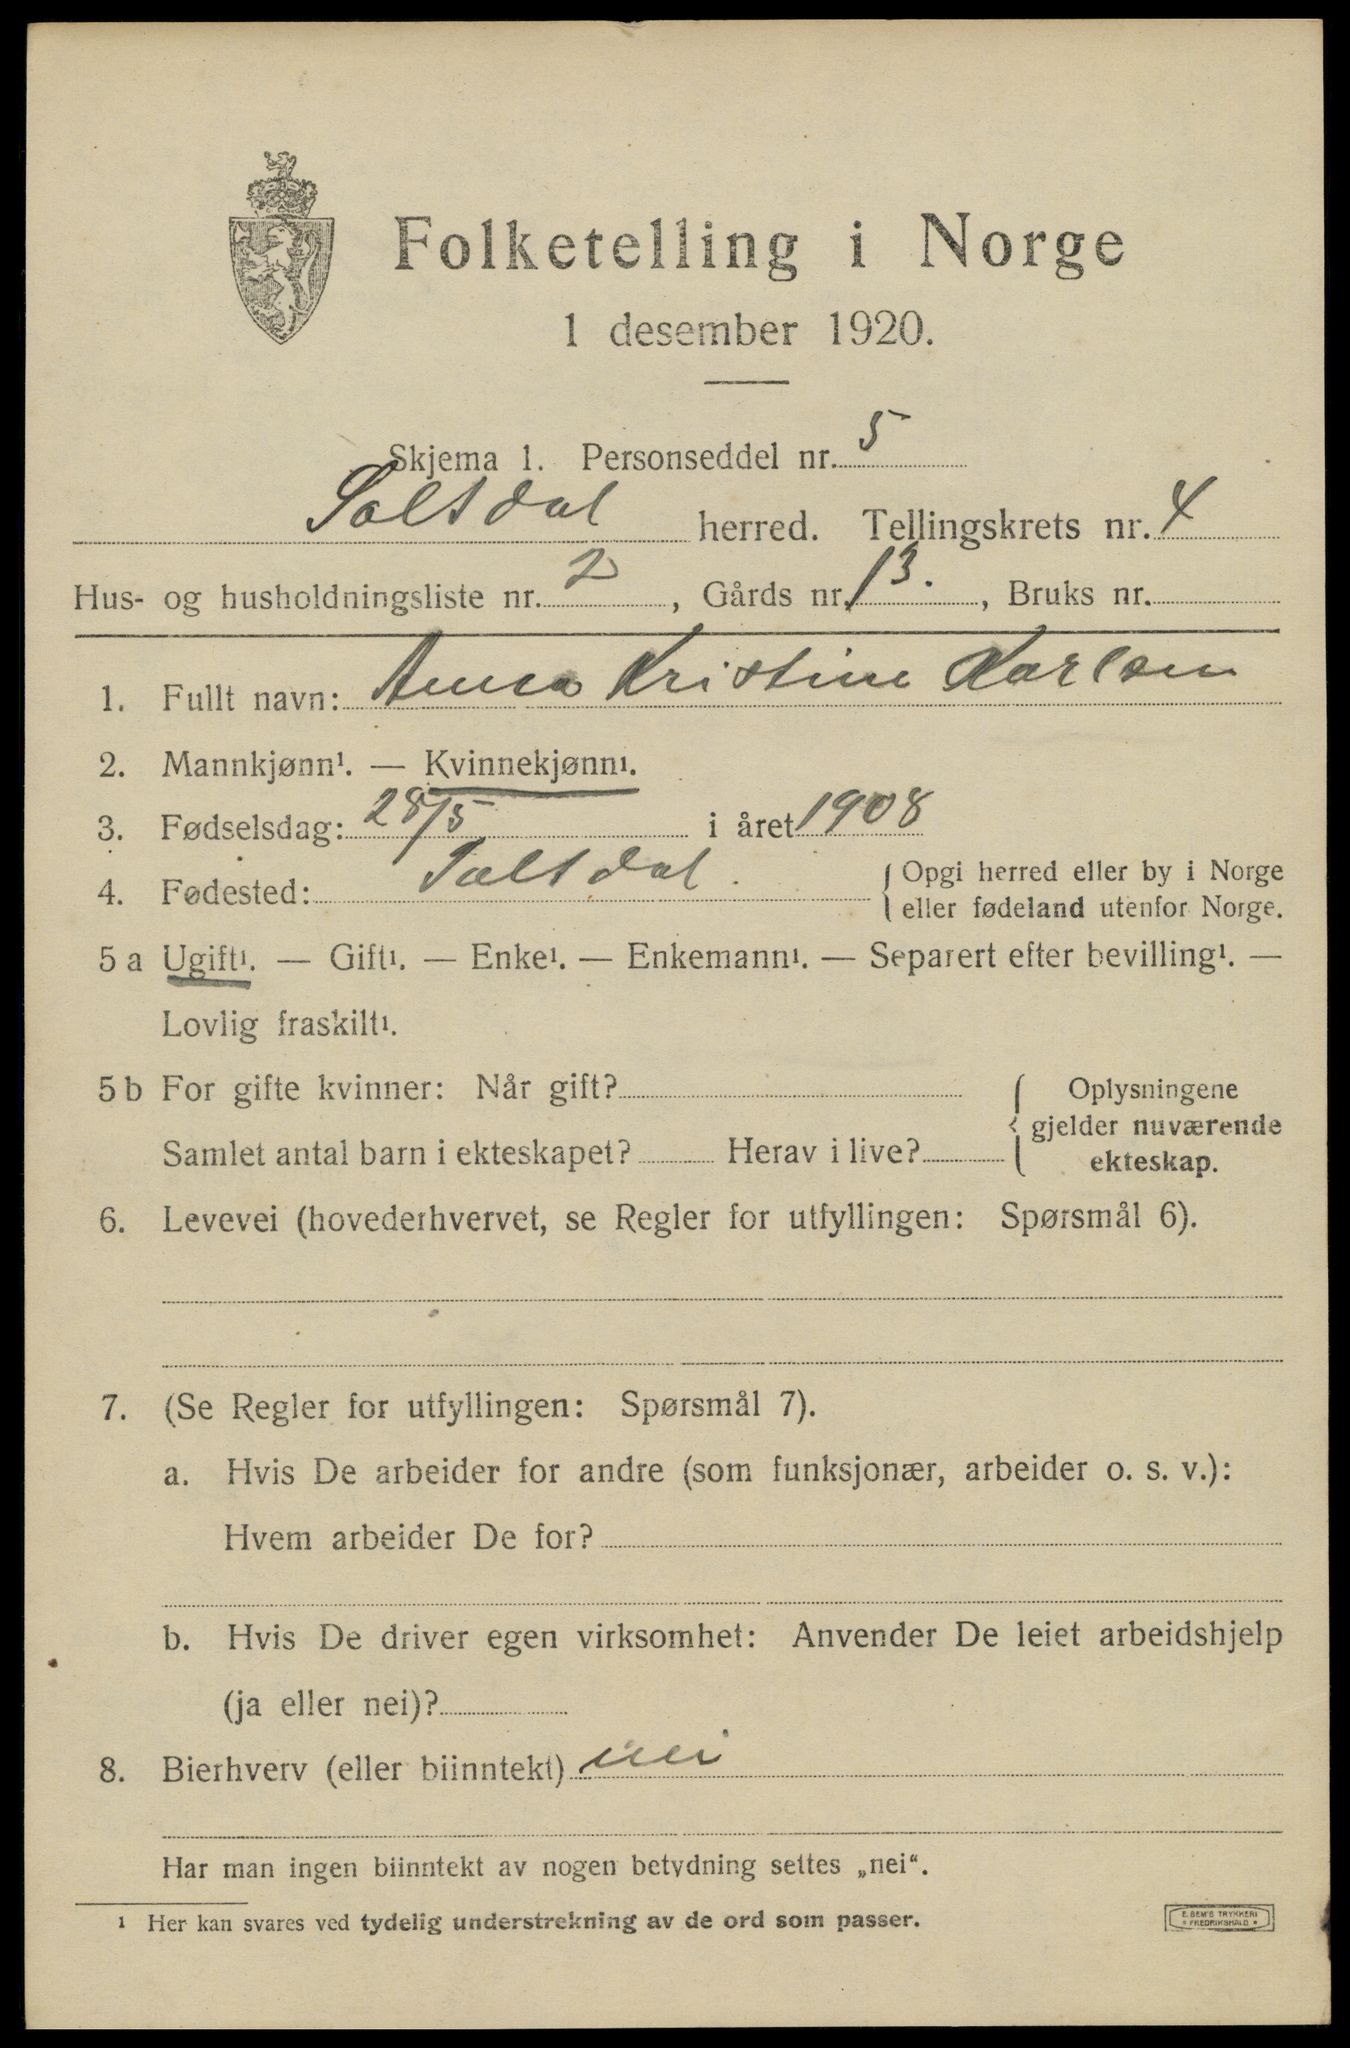 Folketelling i Norge
1 desember 1920.
Skjema 1. Personseddel nr. 5
Saltdal herred. Tellingskrets nr. 4
Hus- og husholdningsliste nr. 2, Gårds nr. 13., Bruks nr.
1. Fullt navn: Anna Kristine Karlsen
2. Mannkjønn¹. — Kvinnekjønn¹.
3. Fødselsdag: 28/5 i året 1908
4. Fødested: Saltdal. Opgi herred eller by i Norge
eller fødeland utenfor Norge.
5 a Ugift¹. — Gift¹. — Enke¹. — Enkemann¹. — Separert efter bevilling¹. —
Lovlig fraskilt¹.
5 b For gifte kvinner: Når gift? Oplysningene
gjelder nuværende
Samlet antal barn i ekteskapet? Herav i live? ekteskap.
6. Levevei (hovederhvervet, se Regler for utfyllingen: Spørsmål 6).
7. (Se Regler for utfyllingen: Spørsmål 7).
a. Hvis De arbeider for andre (som funksjonær, arbeider o. s. v.):
Hvem arbeider De for?
b. Hvis De driver egen virksomhet: Anvender De leiet arbeidshjelp
(ja eller nei)?
8. Bierhverv (eller biinntekt) nei
Har man ingen biinntekt av nogen betydning settes „nei“.
¹ Her kan svares ved tydelig understrekning av de ord som passer.
E. SEM'S TRYKKERI
* FREDRIKSHALD *